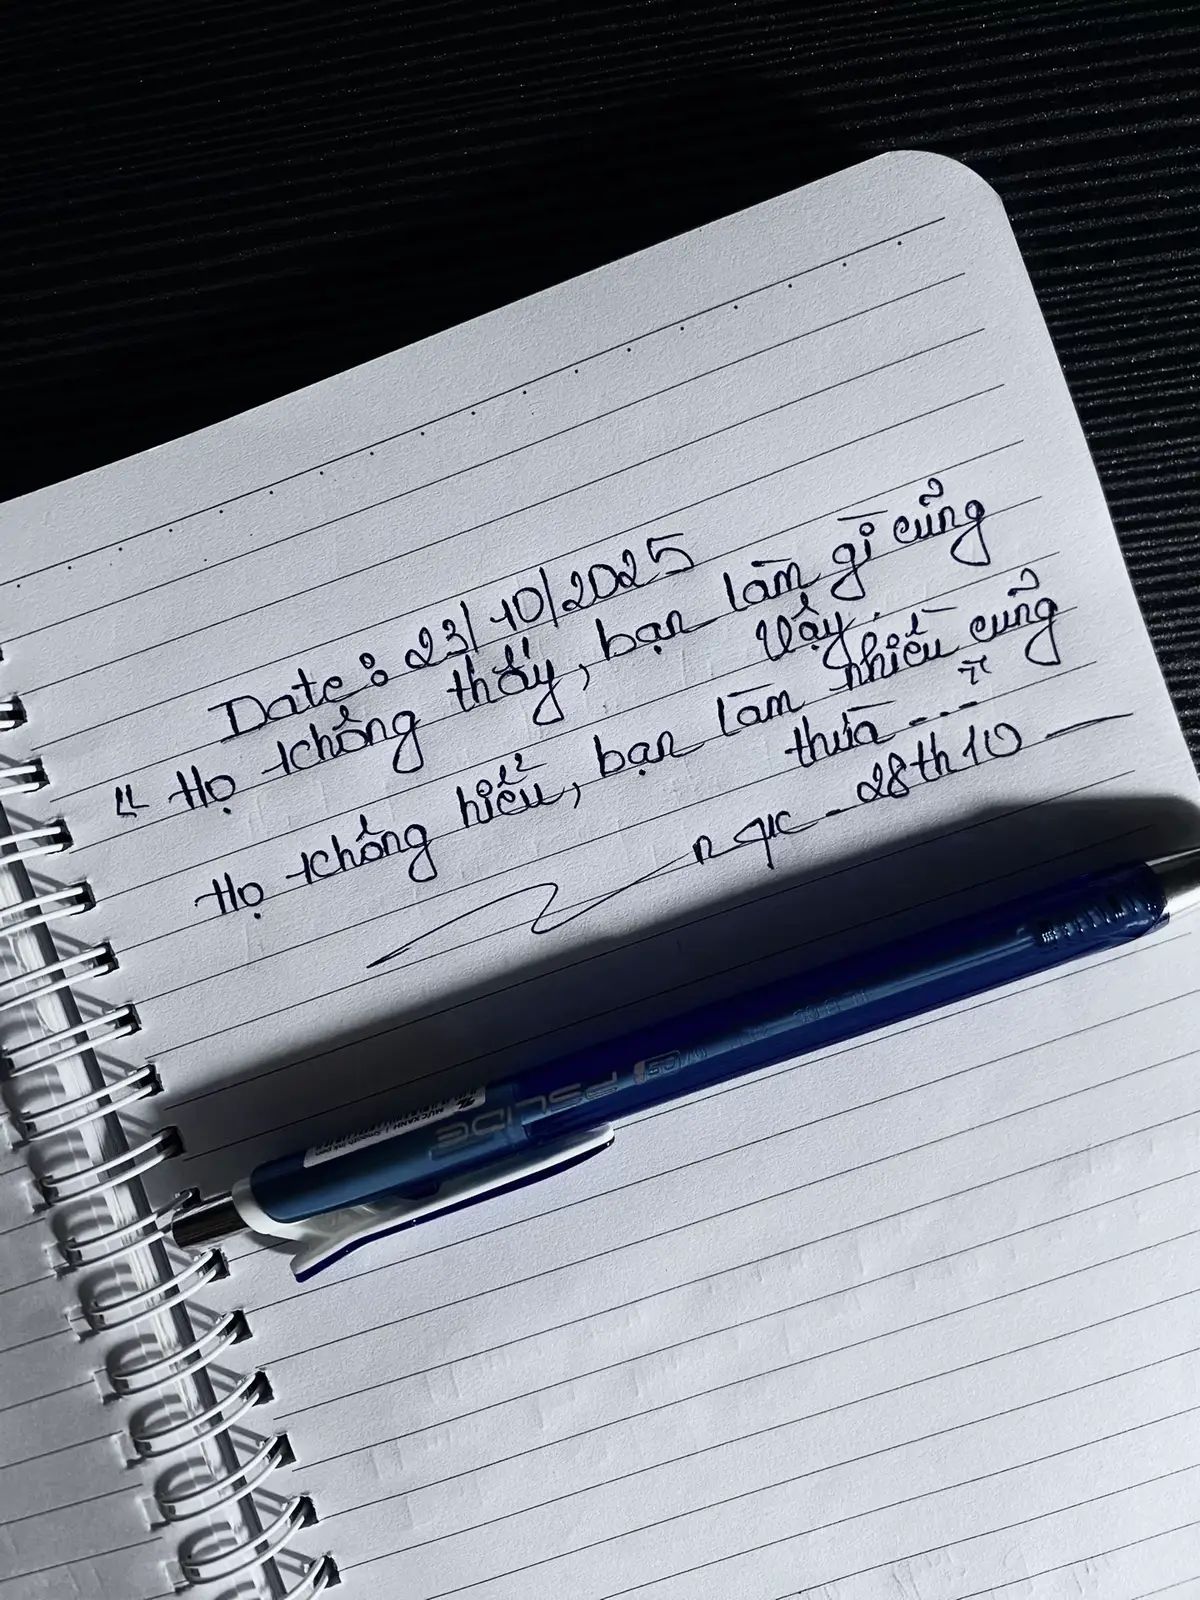 Date: 23/10/2025
" Họ không thấy, bạn làm gì cũng
vậy.
Họ không hiểu, bạn làm nhiều cũng
thừa ... "
28th10
PSLIDE
MỰC XANH / Smooth ink pen